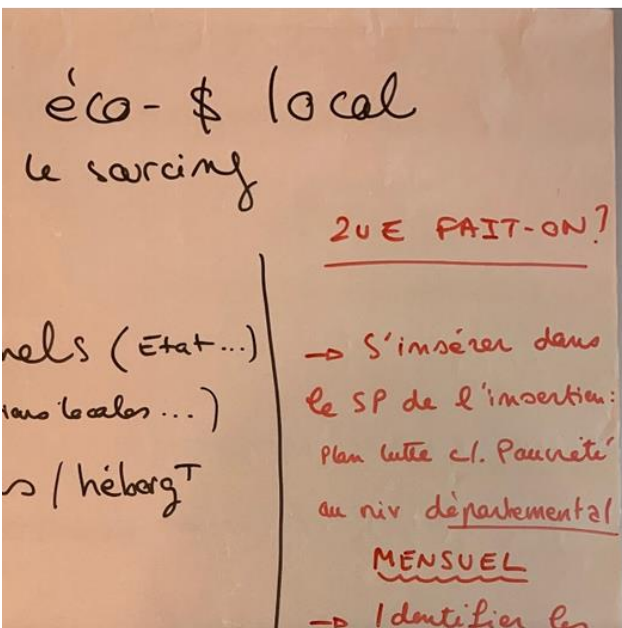 éco-$ local
le sourcing
nels (Etat...)
ions locales...)
s / hébergT
QUE FAIT-ON?
→ S'insérer dans
le SP de l'insertion:
Plan lutte c/. Pauvreté
au niv départemental
MENSUEL
→ Identifier les